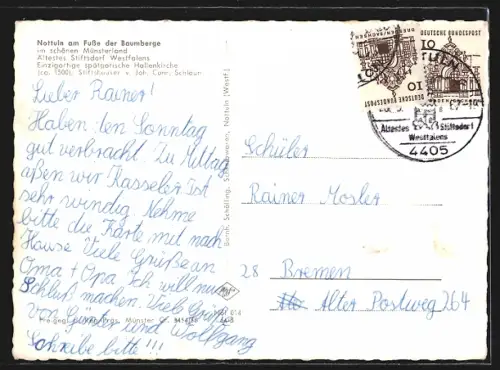 Nottuln am Fuße der Baumberge
im schönen Münsterland
Ältestes Stiftsdorf Westfalens
Einzigartige spätgotische Hallenkirche
(ca. 1500). Stiftshäuser v. Joh. Conr. Schlaun
Lieber Rainer!
Haben den Sonntag
gut verbracht. Zu Mittag
aßen wir Kasseler Ist
sehr windig. Nehme
bitte die Karte mit nach
Hause Viele Grüße an
Oma + Opa. Ich will nun
Schluß machen. Viele Grüße
von Günter und Wolfgang
Schreibe bitte!!!
Nottuln (Westf.)
DEUTSCHE BUNDESPOST
DEUTSCHE BUNDESPOST
10
Ältestes Stiftsdorf
Westfalens
4405
Schüler
Rainer Mosler
28 Bremen
Alter Postweg 264